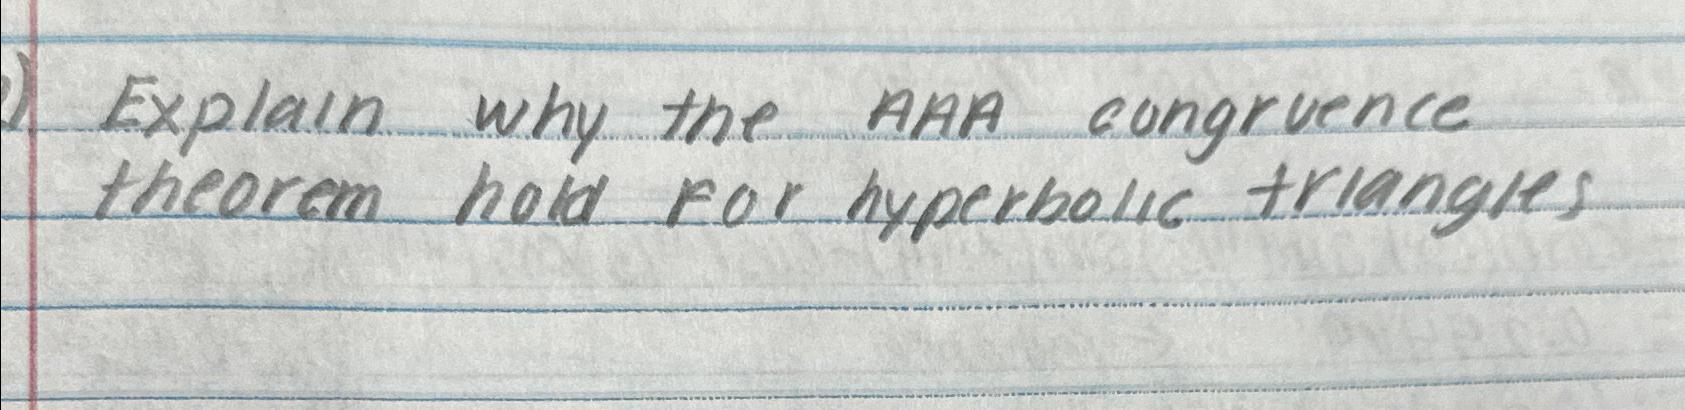 ) Explain why the AAA congruence
theorem hold For hyperbolic triangles